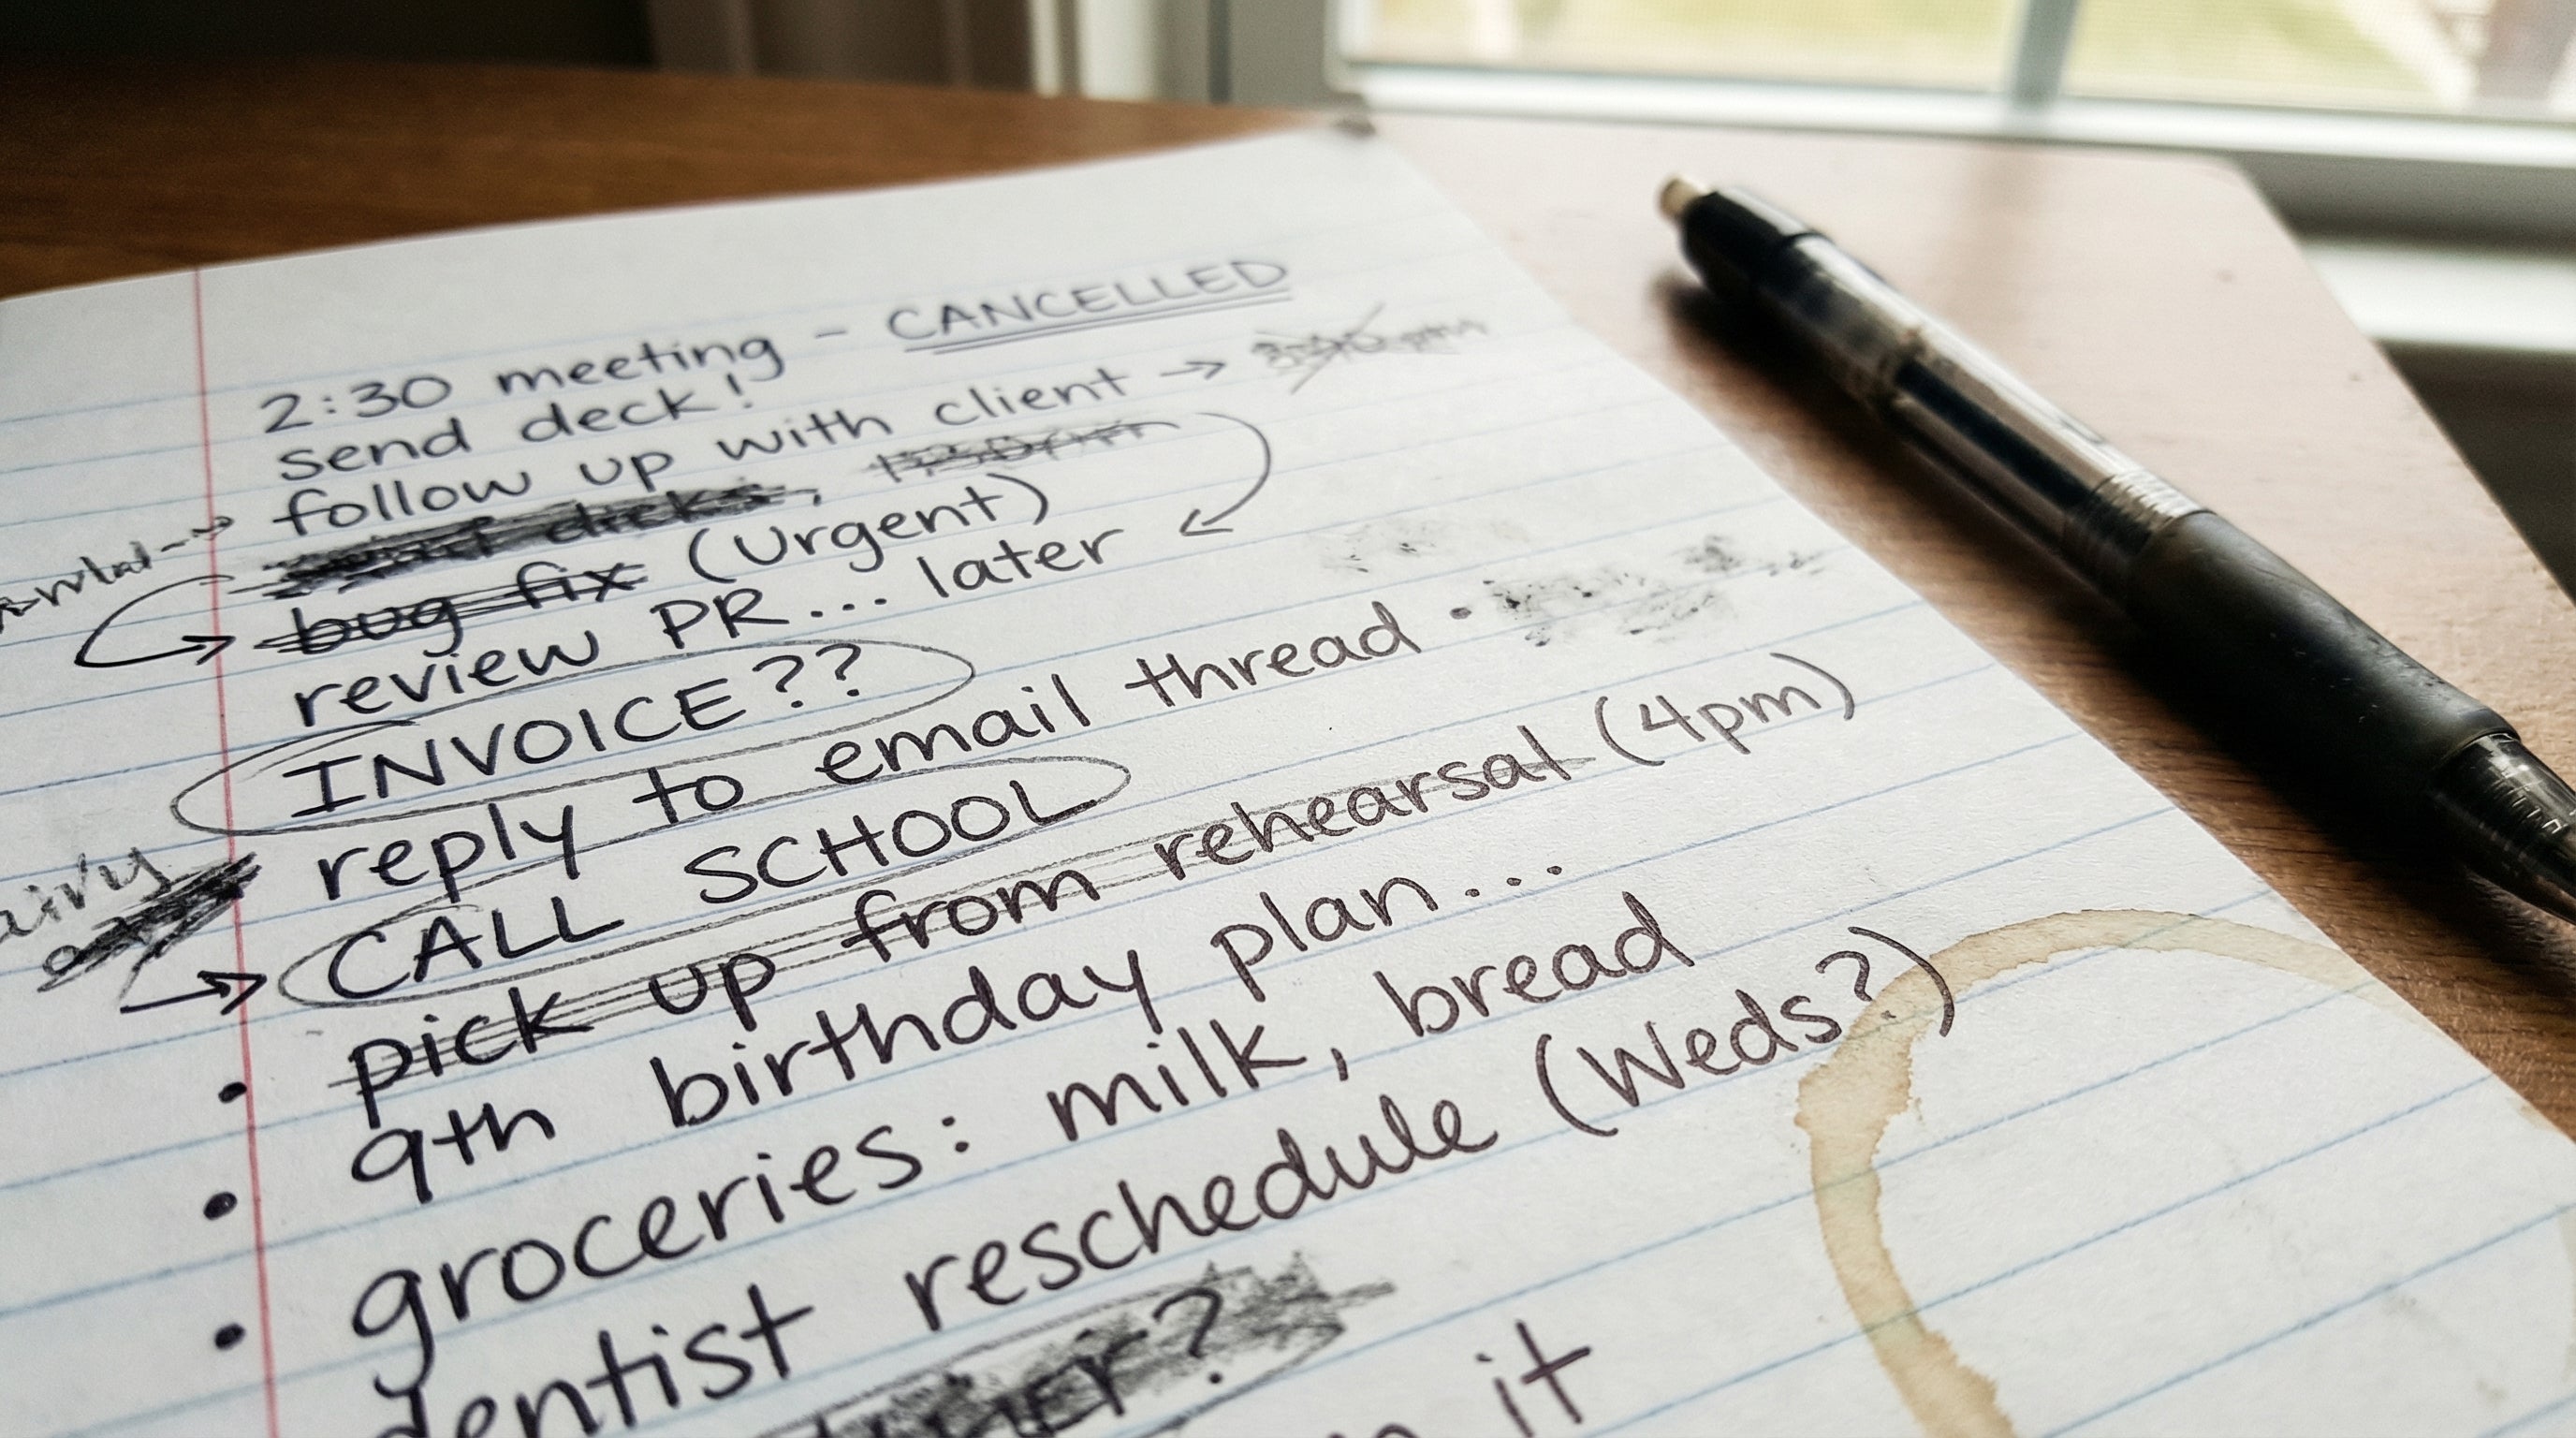 2:30 meeting - CANCELLED
send deck!
follow up with client →
bug fix (Urgent)
review PR... later
INVOICE??
reply to email thread
→ CALL SCHOOL
• pick up from rehearsal (4pm)
• 9th birthday plan...
• groceries: milk, bread
dentist reschedule (Weds?)
it